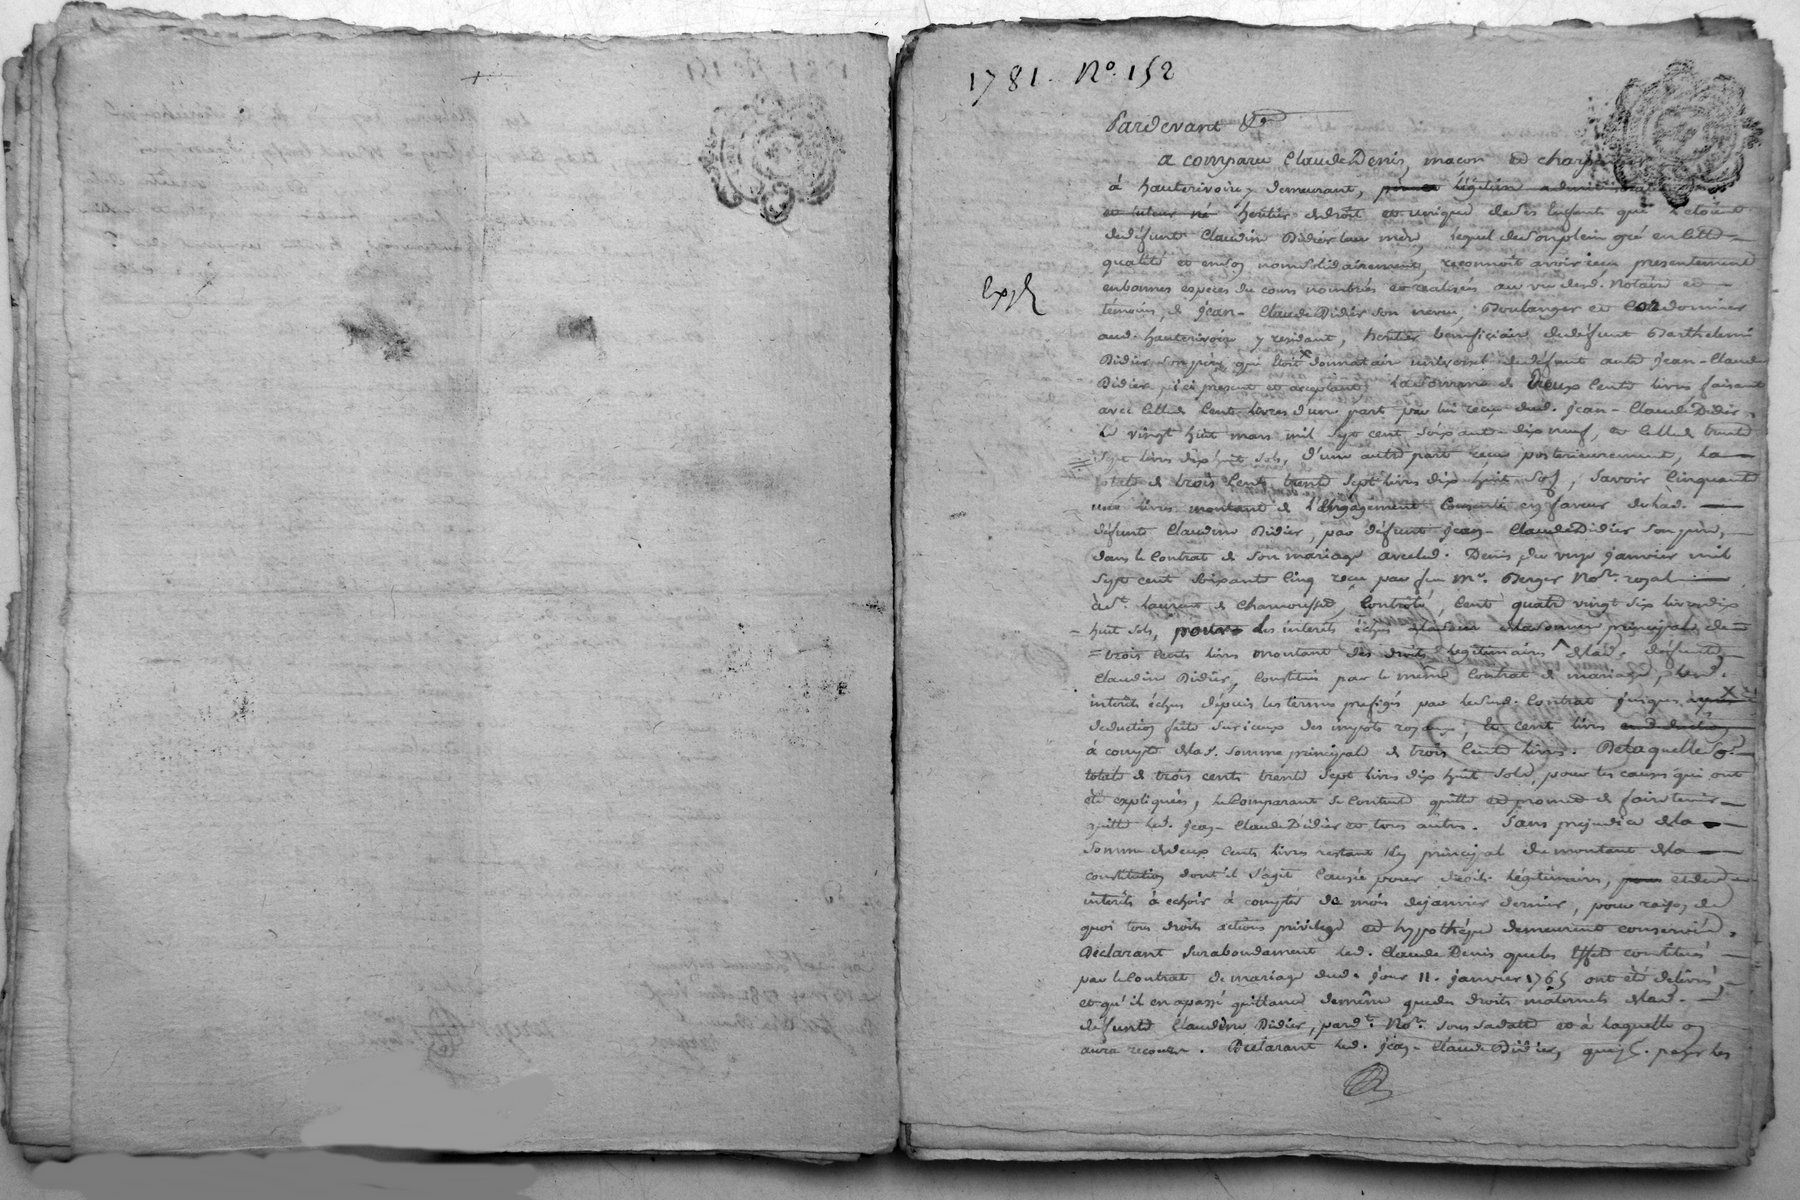 1781. No. 152
Pardevant &c
a comparu Claude Denis, macon et charpentier
à hauterivoire y demeurant, légitime administrateur
et tuteur né héritier de droit et unique de ses Enfants qui l'etoient
de défunte Claudine Didier leur mere, lequel de son plein gré en cette
qualité et en son nom solidairement, reconnoit avoir recu presentement
en bonnes especes du cours nombrées et realisées au vu desd. Notaire et
témoins, de Jean-Claude Didier son neveu, Boulanger et Cordonnier
aud. hauterivoire y residant, héritier beneficiaire de défunt Barthelemi
Didier son pere qui étoit donnataire universel de défunt autre Jean-Claude
Didier, ici present et acceptant, la somme de Deux Cents livres faisant
avec Celle de Cent livres d'une part par lui recue dud. Jean-Claude Didier,
le vingt huit mars mil sept cent soixante dix neuf, et Celle de trente
sept livres dix huit sols, d'une autre part recue posterieurement, La
totale de trois Cents trente sept livres dix huit sols, savoir Cinquante
une livres montant de l'Engagement Consenti en faveur de lad.
défunte Claudine Didier, par défunt Jean-Claude Didier son pere,
dans le Contrat de son mariage avec led. Denis, du onze janvier mil
sept cent soixante Cinq recu par feu Me. Berger Nore. royal
à St. Laurent de Chamousset, Contrôlé, Cent quatre vingt six livres dix
huit sols, pour les interets échus de la somme principale de
trois Cents livres montant des droits légitimaires de lad. défunte
Claudine Didier, Constitués par le même Contrat de mariage, lesd.
intérêts échus depuis les termes prefigés par led. Contrat jusques
deduction faite sur iceux des impots royaux; et cent livres
à compte de lad. somme principale de trois Cents livres. De laquelle So.e
totale de trois cents trente sept livres dix huit sols, pour les causes qui ont
été expliquées, le Comparant se Contente quitte et promet de faire tenir
quitte led. Jean-Claude Didier et tous autres. Sans prejudice de la
somme de deux Cents livres restant du principal du montant de la
constitution dont il s'agit Causée pour droits légitimaires, et des
intérêts à échoir à compter du mois de janvier dernier, pour raison de
quoi tous droits actions privilege et hypothéque demeurent conservés.
Déclarant surabondamment led. Claude Denis que les Effets constitués
par le Contrat de mariage dud. jour 11. janvier 1765 ont été délivrés,
et qu'il en a passé quittance de même que des droits maternels de lad.
défunte Claudine Didier, pard.t Nore. sous sa datte et à laquelle on
aura recours. Declarant led. Jean-Claude Didier, que pour les
Exp.é